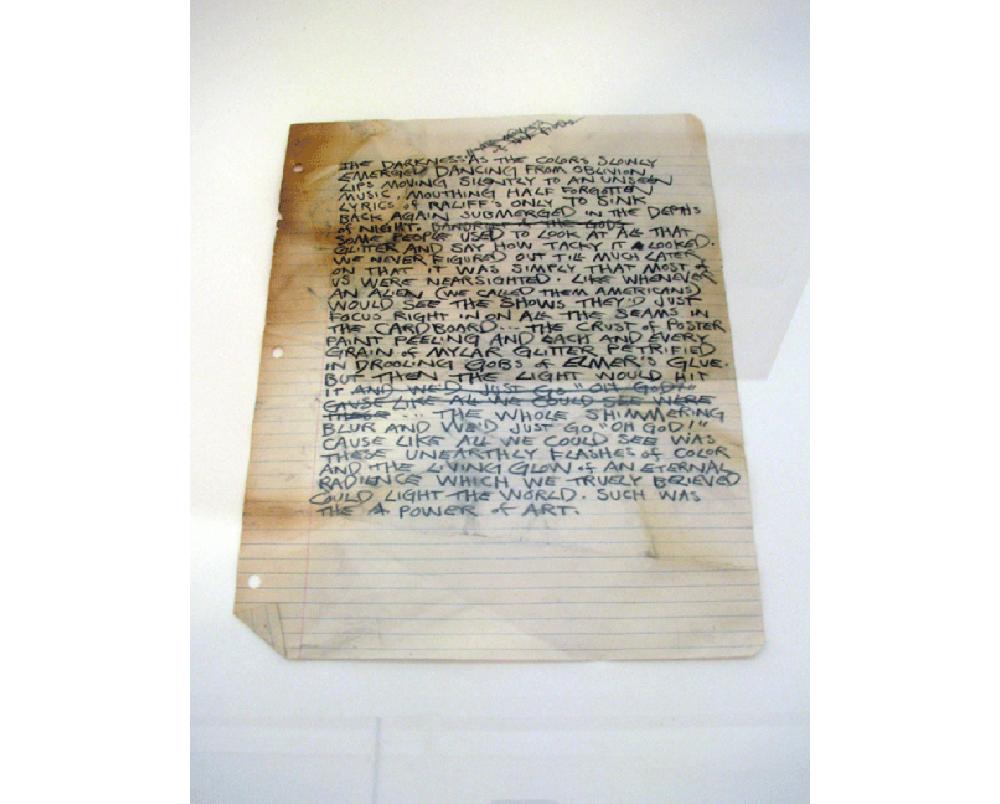 THE DARKNESS AS THE COLORS SLOWLY
EMERGED DANCING FROM OBLIVION
LIPS MOVING SILENTLY TO AN UNSEEN
MUSIC, MOUTHING HALF FORGOTTEN
LYRICS of RALIFF'S ONLY TO SINK
BACK AGAIN SUBMERGED IN THE DEPTHS
of NIGHT. BANDFUL of THE GODS
SOME PEOPLE USED TO LOOK AT ALL THAT
GLITTER AND SAY HOW TACKY IT LOOKED.
WE NEVER FIGURED OUT TILL MUCH LATER
ON THAT IT WAS SIMPLY THAT MOST of
US WERE NEARSIGHTED. LIKE WHENEVER
AN ALIEN (WE CALLED THEM AMERICANS)
WOULD SEE THE SHOWS THEY'D JUST
FOCUS RIGHT IN ON ALL THE SEAMS IN
THE CARDBOARD... THE CRUST of POSTER
PAINT PEELING AND EACH AND EVERY
GRAIN of MYLAR GLITTER PETRIFIED
IN DROOLING GOBS of ELMER'S GLUE.
BUT THEN THE LIGHT WOULD HIT
IT AND WE'D JUST GO "OH GOD!"
CAUSE LIKE ALL WE COULD SEE WERE
THESE ... THE WHOLE SHIMMERING
BLUR AND WE'D JUST GO "OH GOD!"
CAUSE LIKE ALL WE COULD SEE WAS
THESE UNEARTHLY FLASHES of COLOR
AND THE LIVING GLOW of AN ETERNAL
RADIENCE WHICH WE TRUELY BELIEVED
COULD LIGHT THE WORLD. SUCH WAS
THE POWER of ART.